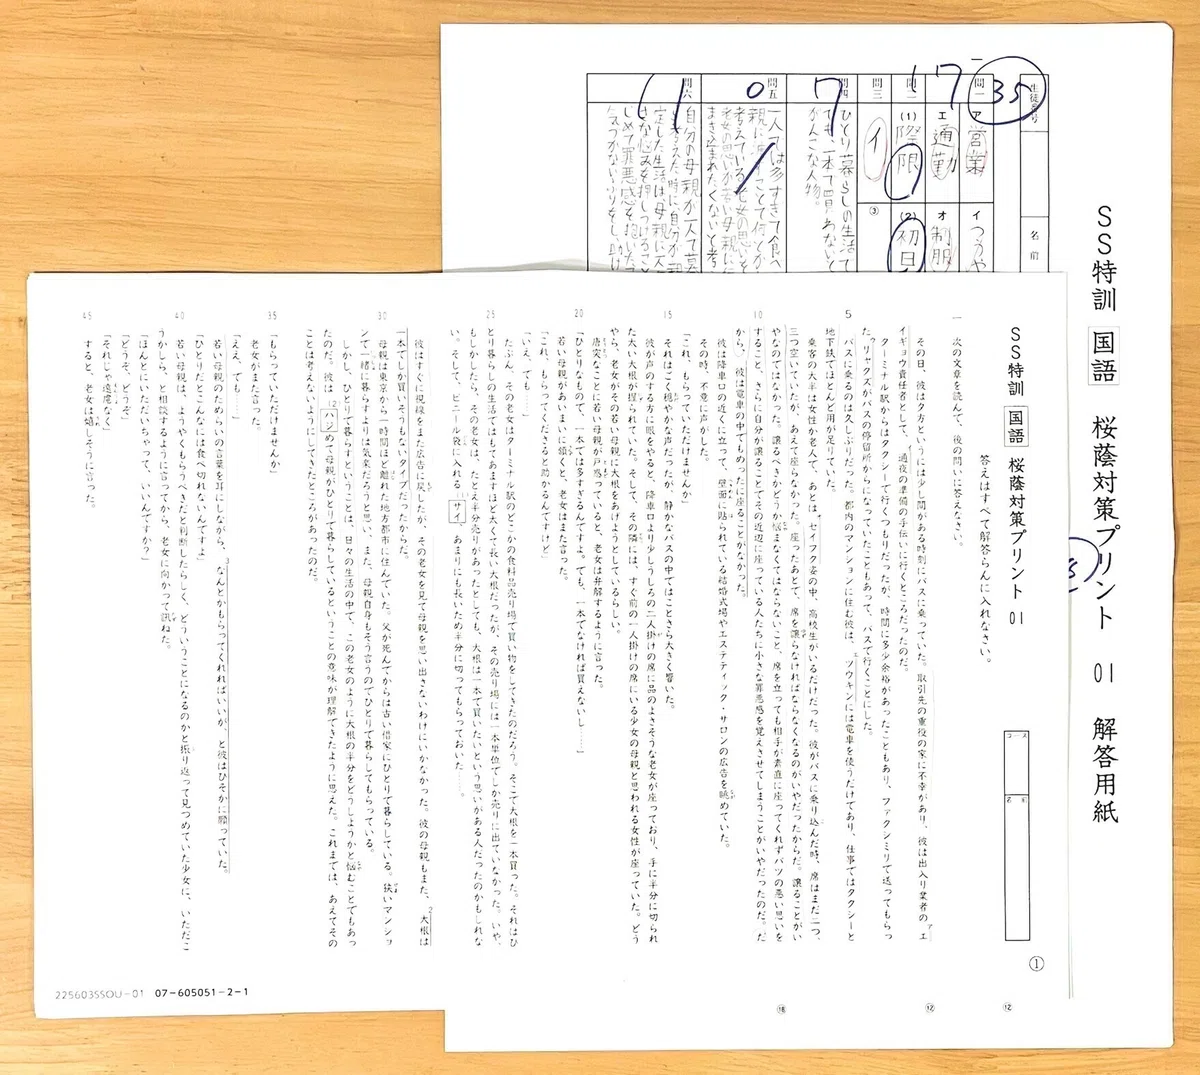 SS特訓 国語 桜蔭対策プリント 01 解答用紙
生徒番号
名前
35
問一
ア 営業
イ つうや
エ 通勤
オ 制服
17
問二
(1) 際限
(2) 初日
問三
イ
③
問四
7
ひとり暮らしの生活で
問五
0
一人では多すぎて食べ
まき込まれたくないと考
問六
自分の母親が一人で暮
⑱
⑫
⑫
SS特訓 国語 桜蔭対策プリント 01
答えはすべて解答らんに入れなさい。
コース
名前
①
一 次の文章を読んで、後の問いに答えなさい。
その日、彼は夕方というには少し間がある時刻にバスに乗っていた。取引先の重役の家に不幸があり、彼は出入り業者のエ
イギョウ責任者として、通夜の準備の手伝いに行くところだったのだ。
ターミナル駅からはタクシーで行くつもりだったが、時間に多少余裕があったこともあり、ファクシミリで送ってもらっ
た、リャクズがバスの停留所からになっていたこともあって、バスで行くことにした。
5
バスに乗るのは久しぶりだった。都内のマンションに住む彼は、ツウキンには電車を使うだけであり、仕事ではタクシーと
地下鉄でほとんど用が足りていた。
乗客の大半は女性か老人で、あとは、セイフク姿の中、高校生がいるだけだった。彼がバスに乗り込んだ時、席はまだ二つ、
三つ空いていたが、あえて座らなかった。座ったあとで、席を譲らなければならなくなるのがいやだったからだ。譲ることがい
やなのではなかった。譲るべきかどうか悩まなくてはならないこと、席を立っても相手が素直に座ってくれずバツの悪い思いを
10
すること、さらに自分が譲ることでその近辺に座っている人たちに小さな罪悪感を覚えさせてしまうことがいやだったのだ。だ
から、彼は電車の中でもめったに座ることがなかった。
彼は降車口の近くに立って、壁面に貼られている結婚式場やエステティック・サロンの広告を眺めていた。
その時、不意に声がした。
「これ、もらっていただけませんか」
15
それはごく穏やかな声だったが、静かなバスの中ではことさら大きく響いた。
彼が声のする方に眼をやると、降車口より少しうしろの二人掛けの席に品のよさそうな老女が座っており、手に半分に切られ
た太い大根が握られていた。そして、その隣には、すぐ前の一人掛けの席にいる少女の母親と思われる女性が座っていた。どう
やら、老女がその若い母親に大根をあげようとしているらしい。
唐突なことに若い母親が戸惑っていると、老女は弁解するように言った。
20
「ひとりなもので、一本では多すぎるんですよ。でも、一本でなければ買えないし……」
若い母親があいまいに頷くと、老女はまた言った。
「これ、もらってくださると助かるんですけど」
「いえ、でも……」
たぶん、その老女はターミナル駅のどこかの食料品売り場で買い物をしてきたのだろう。そこで大根を一本買った。それはひ
25
とり暮らしの生活ではもてあますほど太くて長い大根だったが、その売り場には一本単位でしか売りに出ていなかった。いや、
もしかしたら、その老女は、たとえ半分売りがあったとしても、大根は一本で買いたいという思いがある人だったのかもしれな
い。そして、ビニール袋に入れる サイ、あまりにも長いため半分に切ってもらっておいた……。
彼はすぐに視線をまた広告に戻したが、その老女を見て母親を思い出さないわけにいかなかった。彼の母親もまた、2大根は
一本でしか買いそうもないタイプだったからだ。
30
母親は東京から一時間ほど離れた地方都市に住んでいた。父が死んでからは古い借家にひとりで暮らしている。狭いマンショ
ンで一緒に暮らすよりは気楽だろうと思い、また、母親自身もそう言うのでひとりで暮らしてもらっている。
しかし、ひとりで暮らすということは、日々の生活の中で、この老女のように大根の半分をどうしようかと悩むことでもあっ
たのだ。彼は ハジめて母親がひとりで暮らしているということの意味が理解できたように思えた。これまでは、あえてその
ことは考えないようにしてきたところがあったのだ。
35
「もらっていただけませんか」
老女がまた言った。
「ええ、でも……」
若い母親のためらいの言葉を耳にしながら、3なんとかもらってくれればいいが、と彼はひそかに願っていた。
「ひとりだとこんなには食べ切れないんですよ」
40
若い母親は、ようやくもらうべきだと判断したらしく、どういうことになるのかと振り返って見つめていた少女に、いただこ
うかしら、と相談するように言ってから、老女に向かって訊ねた。
「ほんとにいただいちゃって、いいんですか?」
「どうぞ、どうぞ」
「それじゃ遠慮なく」
45
すると、老女は嬉しそうに言った。
225603SSOU-01 07-605051-2-1